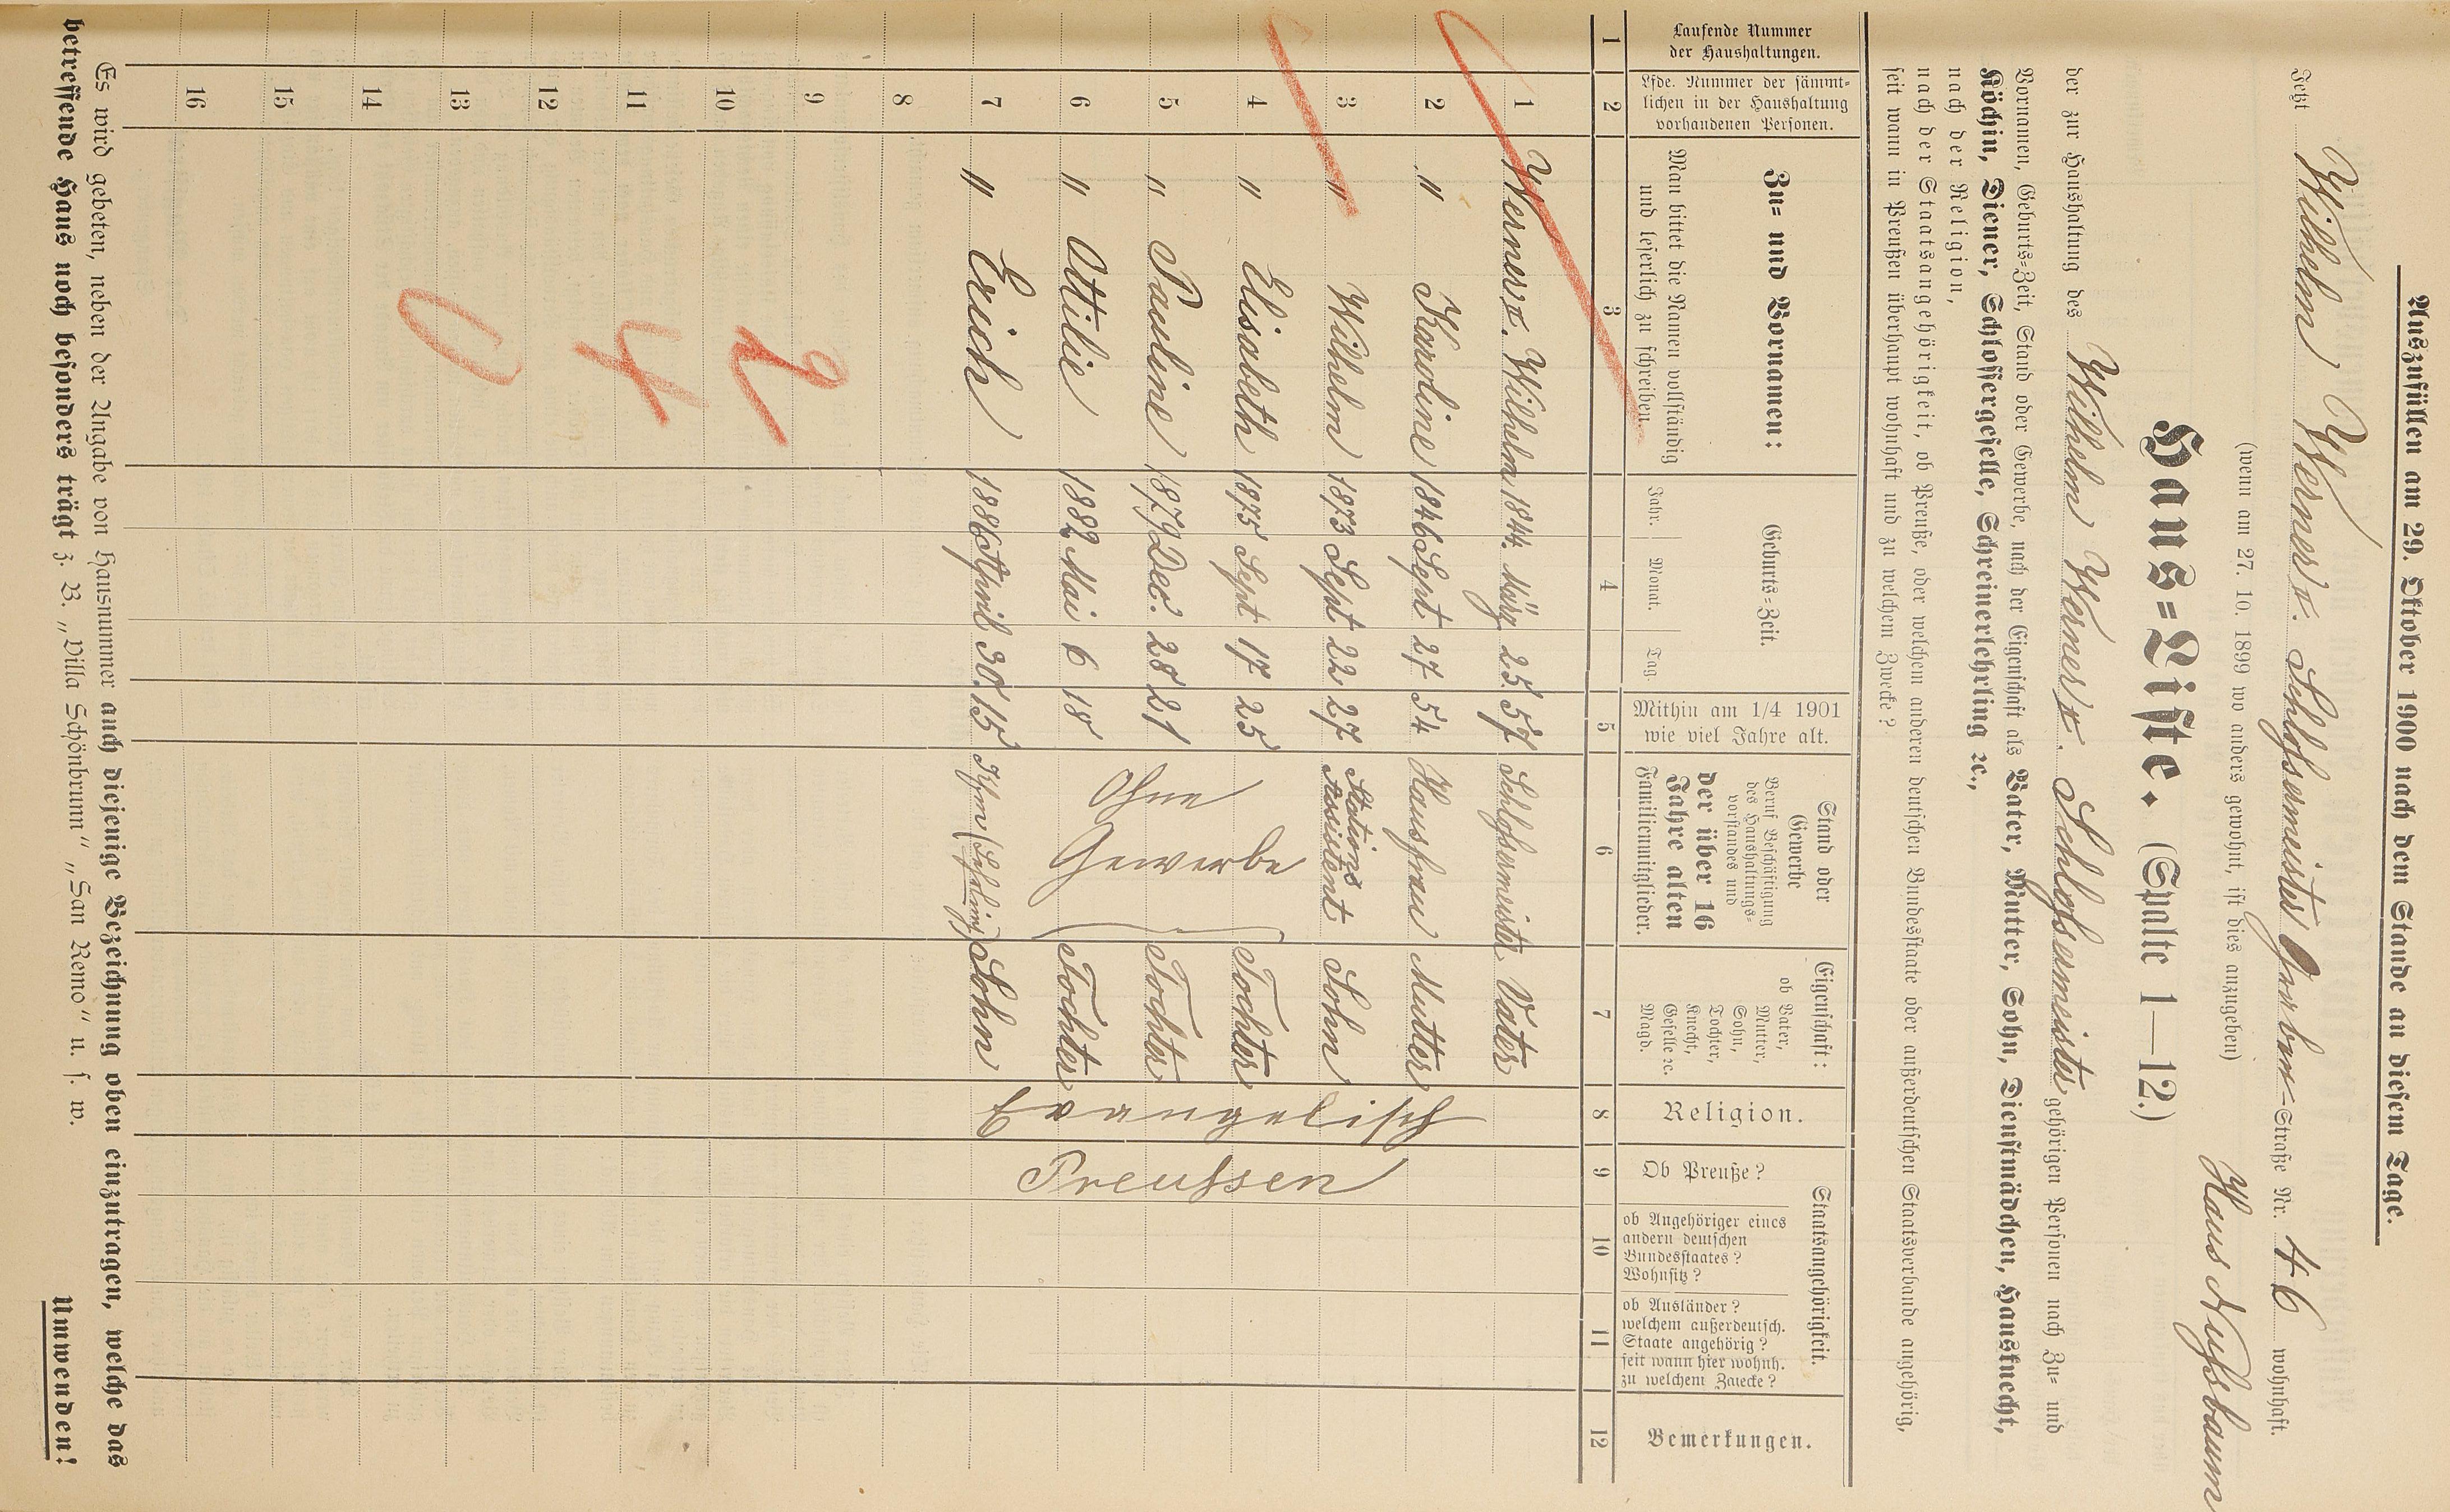 Auszufüllen am 29. Oktober 1900 nach dem Stande an diesem Tage.
Jetzt Wilhelm Werner Schlossermeister Straße Nr. 46 wohnhaft.
(wenn am 27. 10. 1899 wo anders gewohnt, ist dies anzugeben)
Haus Nußbaum
Haus-Liste. (Spalte 1—12.)
der zur Haushaltung des Wilhelm Werner Schlossermeister gehörigen Personen nach Zu- und
Vornamen, Geburts-Zeit, Stand oder Gewerbe, nach der Eigenschaft als Vater, Mutter, Sohn, Dienstmädchen, Hausknecht,
Köchin, Diener, Schlossergeselle, Schreinerlehrling ꝛc.,
nach der Religion,
nach der Staatsangehörigkeit, ob Preuße, oder welchem anderen deutschen Bundesstaate oder außerdeutschen Staatsverbande angehörig,
seit wann in Preußen überhaupt wohnhaft und zu welchem Zwecke?
Laufende Nummer
der Haushaltungen.
Lfde. Nummer der sämmt-
lichen in der Haushaltung
vorhandenen Personen.
Zu- und Vornamen:
Man bittet die Namen vollständig
und leserlich zu schreiben.
Geburts-Zeit.
Jahr. Monat. Tag.
Mithin am 1/4 1901
wie viel Jahre alt.
Stand oder
Gewerbe
Beruf Beschäftigung
des Haushaltungs-
vorstandes und
der über 16
Jahre alten
Familienmitglieder.
Eigenschaft:
ob Vater,
Mutter,
Sohn,
Tochter,
Knecht,
Geselle ꝛc.
Magd.
Religion.
Staatsangehörigkeit.
Ob Preuße?
ob Angehöriger eines
andern deutschen
Bundesstaates?
Wohnsitz?
ob Ausländer?
welchem außerdeutsch.
Staate angehörig?
seit wann hier wohnh.
zu welchem Zwecke?
Bemerkungen.
1 2 3 4 5 6 7 8 9 10 11 12
1 Werner Wilhelm 1844. März 25. 57 Schlossermeister Vater
2 " Karoline 1846 Sept. 27 54 Hausfrau Mutter
3 " Wilhelm 1873 Sept 22 27 Stations Assistent Sohn
4 " Elisabeth 1875 Sept 17. 25 Tochter
5 " Pauline 1879 Dec. 28 21 Ohne Gewerbe Tochter
6 " Ottilie 1882 Mai 6 18 Tochter
7 " Erich 1886 April 30. 15 (Lehrling) Sohn
Evangelisch
Preußen
8
9
10
11
12
13
14
15
16
2
4
0
Es wird gebeten, neben der Angabe von Hausnummer auch diejenige Bezeichnung oben einzutragen, welche das
betreffende Haus noch besonders trägt z. B. „Villa Schönbrunn" „San Remo" u. s. w.
Umwenden!